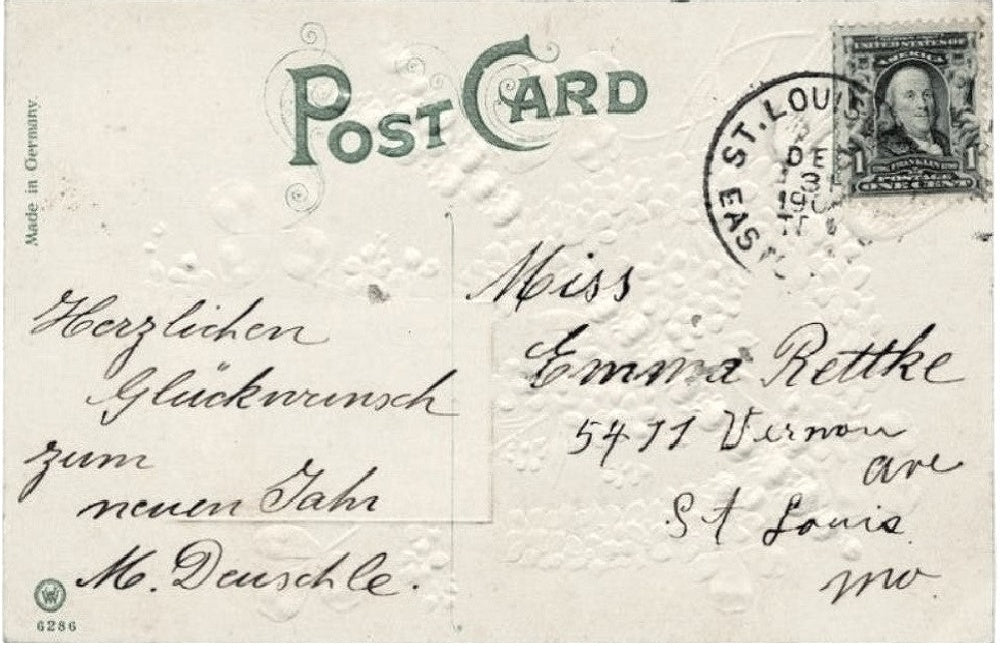 POST CARD
Made in Germany.
UNITED STATES OF
AMERICA
1 FRANKLIN 1
POSTAGE
ONE CENT
EAST ST. LOUIS
DE
Herzlichen
Glückwunsch
zum
neuen Jahr
M. Deuschle.
Miss
Emma Rettke
5411 Vernon
ave
St Louis
Mo.
6286